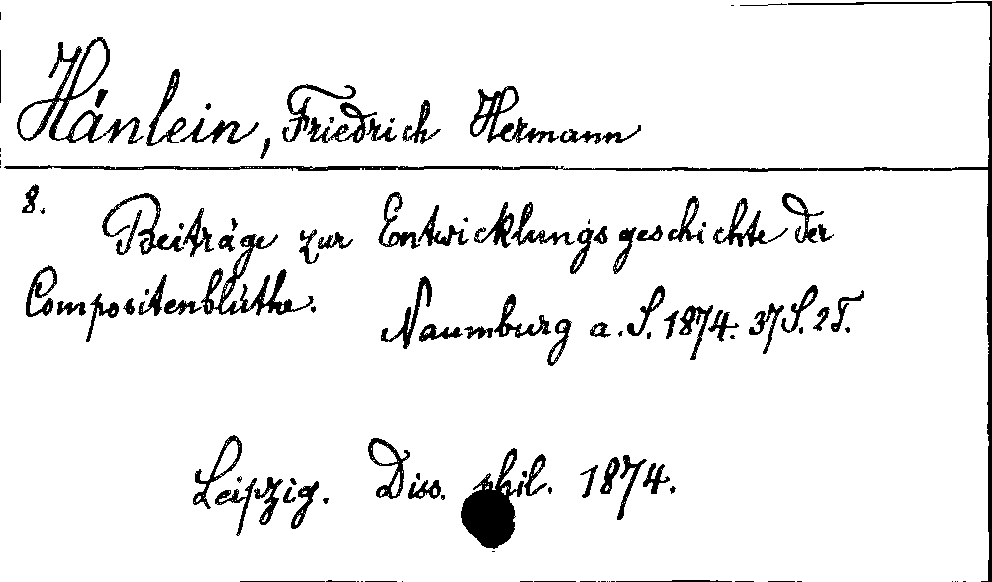 Hänlein, Friedrich Hermann
8.
Beiträge zur Entwicklungsgeschichte der
Compositenblüthe.
Naumburg a. S. 1874. 37 S. 2 T.
Leipzig. Diss. phil. 1874.